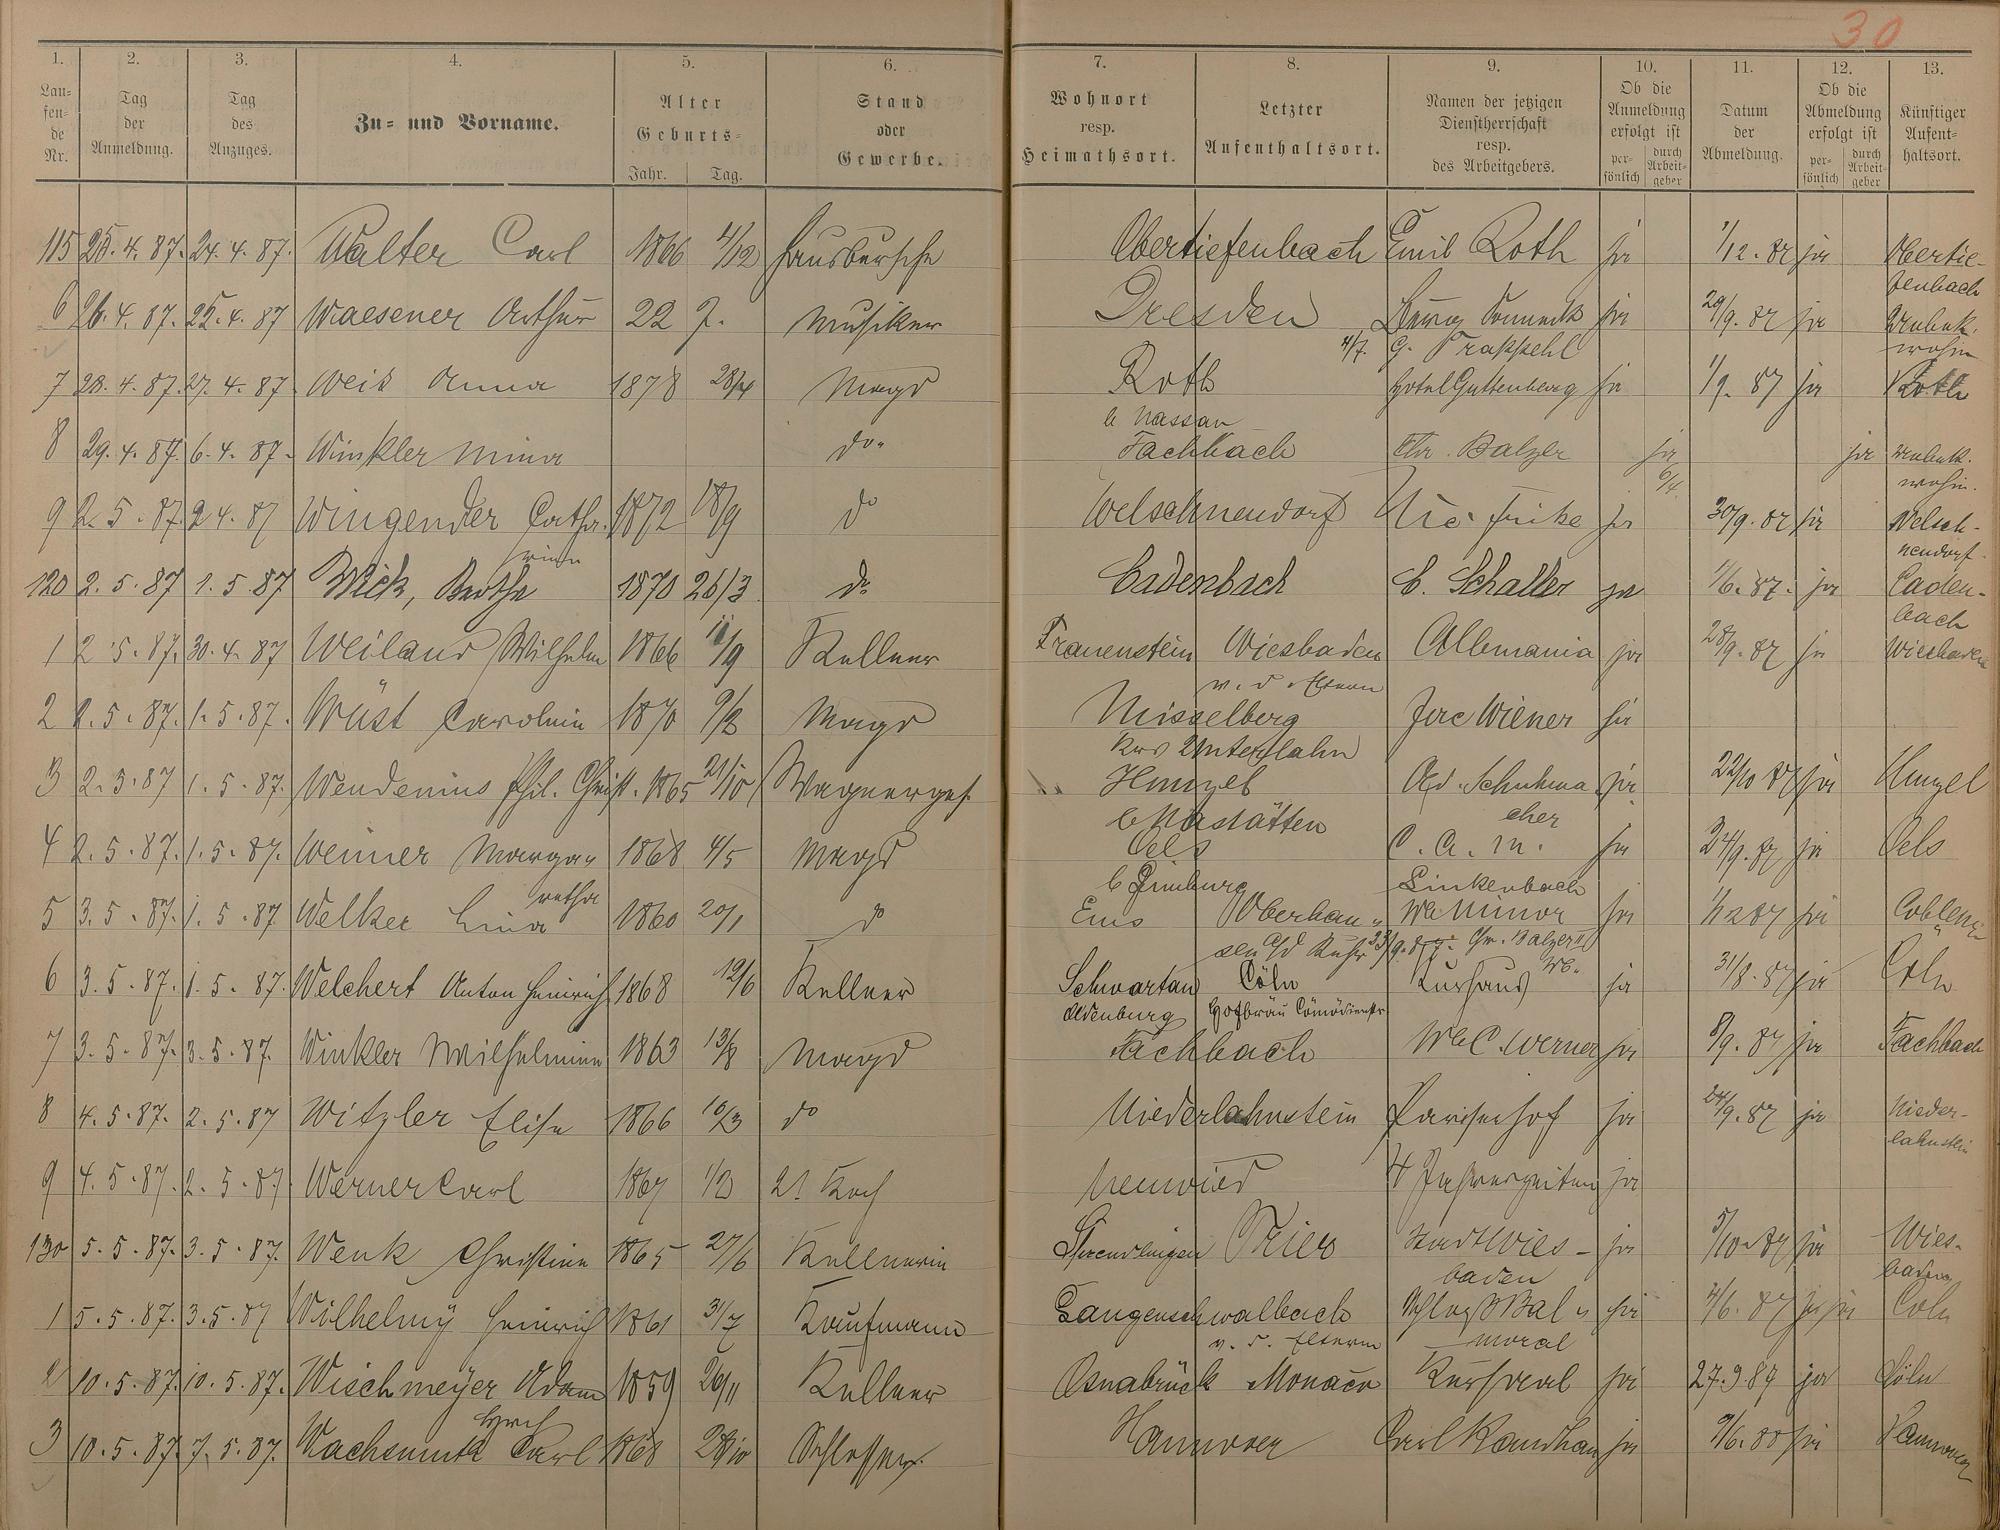 30
1. 2. 3. 4. 5. 6. 7. 8. 9. 10. 11. 12. 13.
Laufende Nr. Tag der Anmeldung. Tag des Anzuges. Zu- und Vorname. Alter Geburts- Jahr. Tag. Stand oder Gewerbe. Wohnort resp. Heimathsort. Letzter Aufenthaltsort. Namen der jetzigen Dienstherrschaft resp. des Arbeitgebers. Ob die Anmeldung erfolgt ist persönlich durch Arbeitgeber Datum der Abmeldung. Ob die Abmeldung erfolgt ist persönlich durch Arbeitgeber Künftiger Aufenthaltsort.
115 25.4.87. 24.4.87. Walter Carl 1866 4/12 Hausbursche Obertiefenbach Emil Roth ja 1/12.87 ja Obertie-
fenbach
6 26.4.87. 25.4.87 Waesener Arthur 22 J. Musiker Dresden ja 29/9.87 ja Unbek.
4/7. G. wohin
7 28.4.87. 27.4.87 Weis Anna 1878 28/4 Magd Roth Hotel Guttenberg ja 1/9.87 ja Roth
b Nassau
8 29.4.87. 6.4.87. Winkler Mina do. Fachbach Chr. Balzer ja ja unbek.
6/4 wohin.
9 2.5.87. 24.87 Wingender Catha- 1872 18/9 do Welschneudorf Nic. Fricke ja 30/9.87 ja Welsch-
rina neudorf.
120 2.5.87 1.5.87 Wick, Bertha 1870 26/3 do Cadenbach C. Schaller ja 1/6.87. ja Caden-
bach
1 2.5.87. 30.4.87 Weiland Wilhelm 1866 11/9 Kellner Frauenstein Wiesbaden Allemania ja 28/9.87 ja Wiesbaden
v. d. Eltern
2 2.5.87. 1.5.87. Wüst Carolina 1870 9/2 Magd Misselberg Jac Wiener ja
Krs Unterlahn
3 2.5.87 1.5.87. Wendenius Phil. Christ. 1865 21/10 Wagnerges. Hunzel Ad. Schuhma- ja 22/10 87 ja Hunzel
b Nastätten cher
4 2.5.87. 1.5.87. Weimer Margar 1868 4/5 Magd Oels C. A. M. ja 24/9.87 ja Oels
retha b Limburg Linkenbach
5 3.5.87. 1.5.87 Welker Lina 1860 20/1 do Ems Oberhau- Wb Minor ja 1/12 87 ja Coblenz
sen a/d Ruhr 23/9.87. Chr. Balzer II
Wb.
6 3.5.87. 1.5.87. Welchert Anton Heinrich 1868 12/6 Kellner Schwartau Cöln Kurhaus ja 31/8.87 ja Cöln
Oldenburg Hofbräu Cömödienstr.
7 3.5.87. 3.5.87. Winkler Wilhelmine 1863 13/8 Magd Fachbach Wb C. Werner ja 8/9.87 ja Fachbach
8 4.5.87. 2.5.87 Witzler Elise 1866 16/3 do Niederlahnstein Pariserhof ja 24/9.87 ja Nieder-
lahnstein
9 4.5.87. 2.5.87. Werner Carl 1867 1/2 2t. Koch Neuwied 4 Jahreszeiten ja
130 5.5.87. 3.5.87. Wenk Christine 1865 27/6 Kellnerin Sprendlingen Trier Stadt Wies- ja 5/10.87 ja Wies-
baden baden
1 5.5.87. 3.5.87 Wilhelmÿ Heinrich 1861 31/7 Kaufmann Langenschwalbach Schloß Bal- ja 4/6.87 ja Cöln
v. d. Eltern moral
2 10.5.87. 10.5.87. Wischmeÿer Adam 1859 26/11 Kellner Osnabrück Monaco Kursaal ja 27.9.87 ja Cöln
3 10.5.87. 7.5.87. Wachsmuth Carl 1868 28/10 Schlosser Hannover Carl ja 9/6.88 ja Hannover